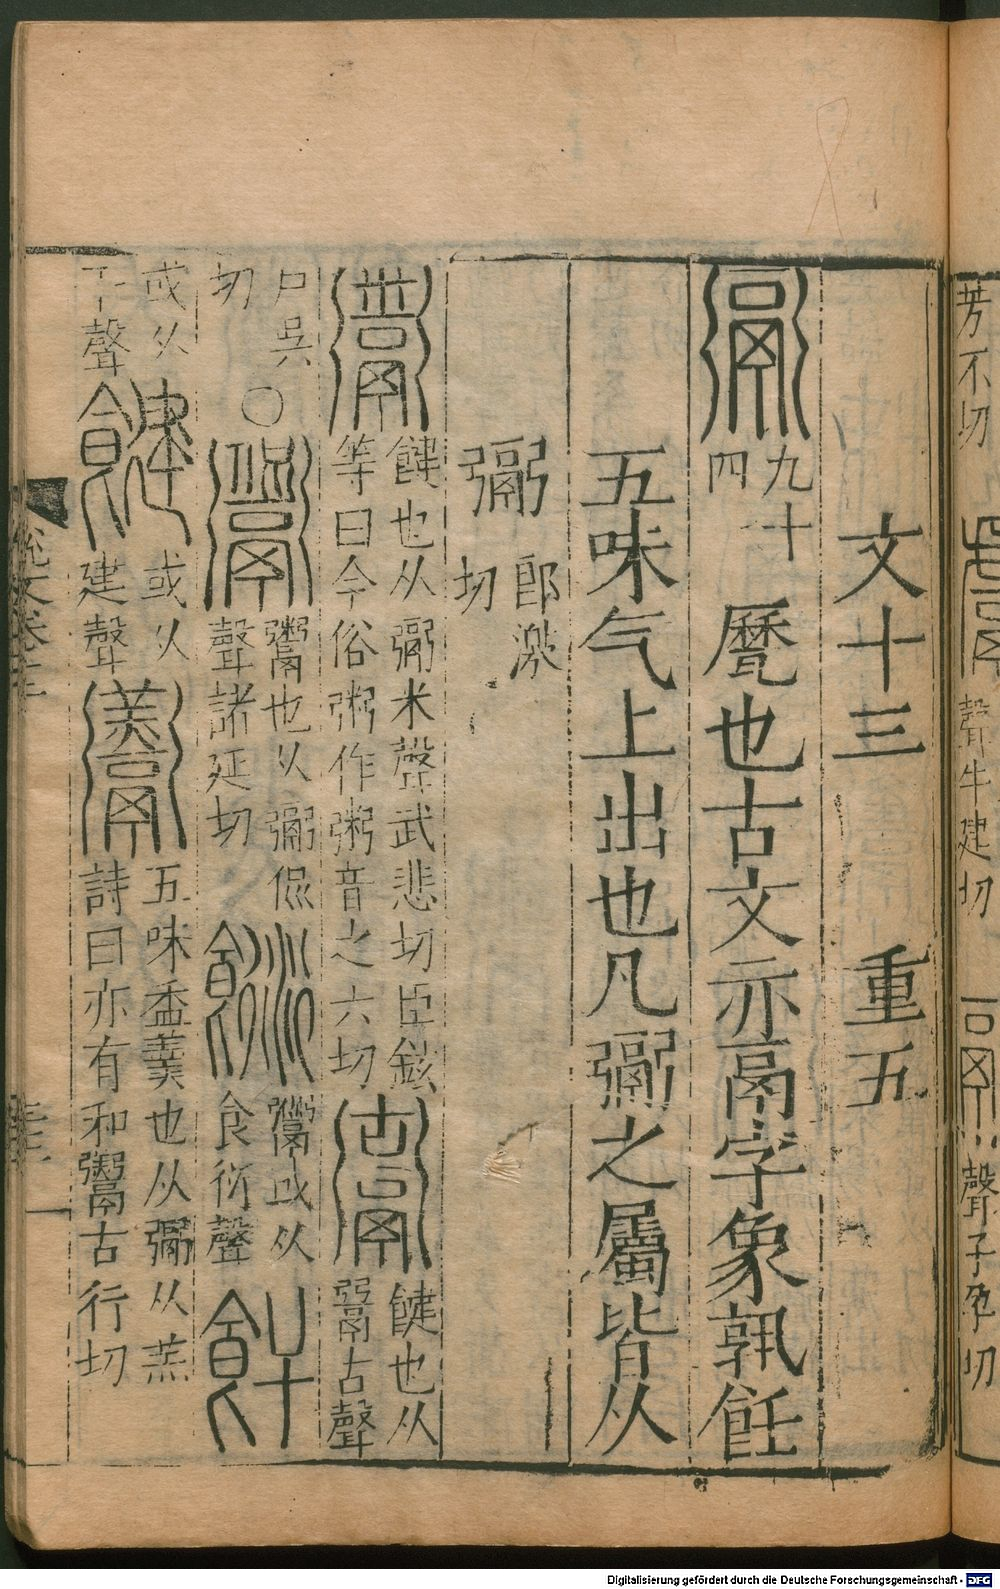 芳不切
聲牛建切
聲子孕切
文十三 重五
䰜 九十四 㽁也古文亦鬲字象孰飪
五味气上出也凡䰜之屬皆从
䰜 郎激切
鬻 䭈也从䰜米聲武悲切臣鉉等曰今俗粥作粥音之六切 䭈也从䰜古聲
戶吳切 ○ 鬻也从䰜侃聲諸延切 䰼或从食衍聲 飦
或从干聲 䭈 或从建聲 五味盉羹也从䰜从羔詩曰亦有和鬻古行切
說文卷三下
Digitalisierung gefördert durch die Deutsche Forschungsgemeinschaft - DFG